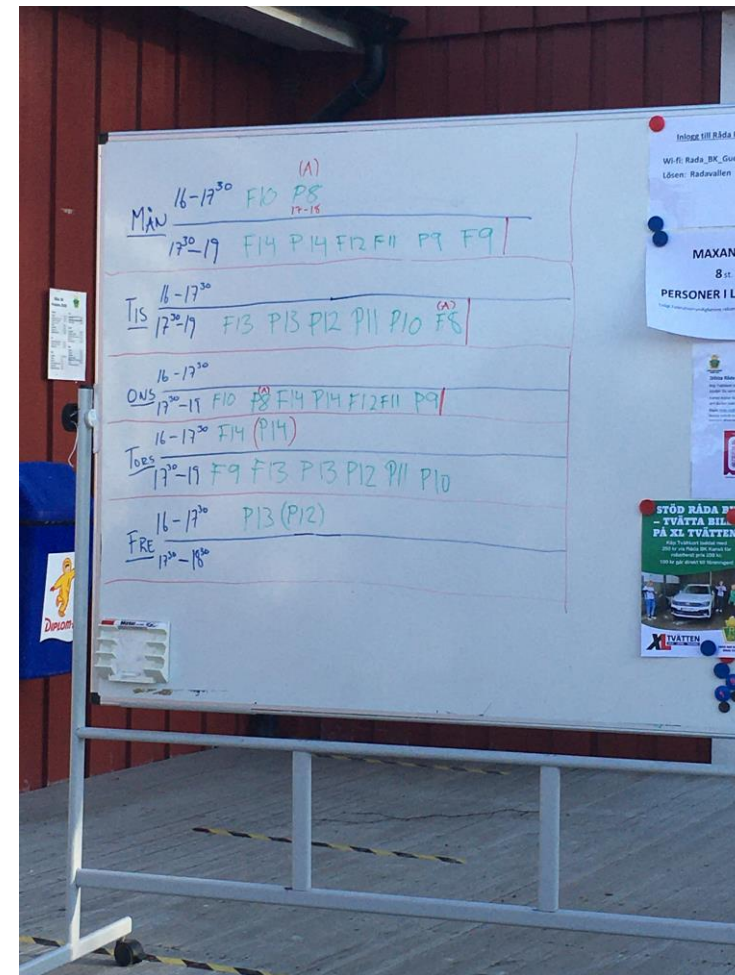 (A)
16-17³⁰ F10 P8
17-18
MÅN
17³⁰-19 F14 P14 F12 F11 P9 F9
16-17³⁰
TIS
(A)
17³⁰-19 F13 P13 P12 P11 P10 F8
16-17³⁰
ONS
(A)
17³⁰-19 F10 P8 F14 P14 F12 F11 P9
16-17³⁰ F14 (P14)
TORS
17³⁰-19 F9 F13 P13 P12 P11 P10
16-17³⁰ P13 (P12)
FRE
17³⁰-18³⁰
Inlogg till Råda
Wi-fi: Rada_BK_Gu
Lösen: Radavallen
MAXAN
8 st.
PERSONER I L
STÖD RÅDA B
– TVÄTTA BIL
PÅ XL TVÄTTEN
XL TVÄTTEN
DIPLOM